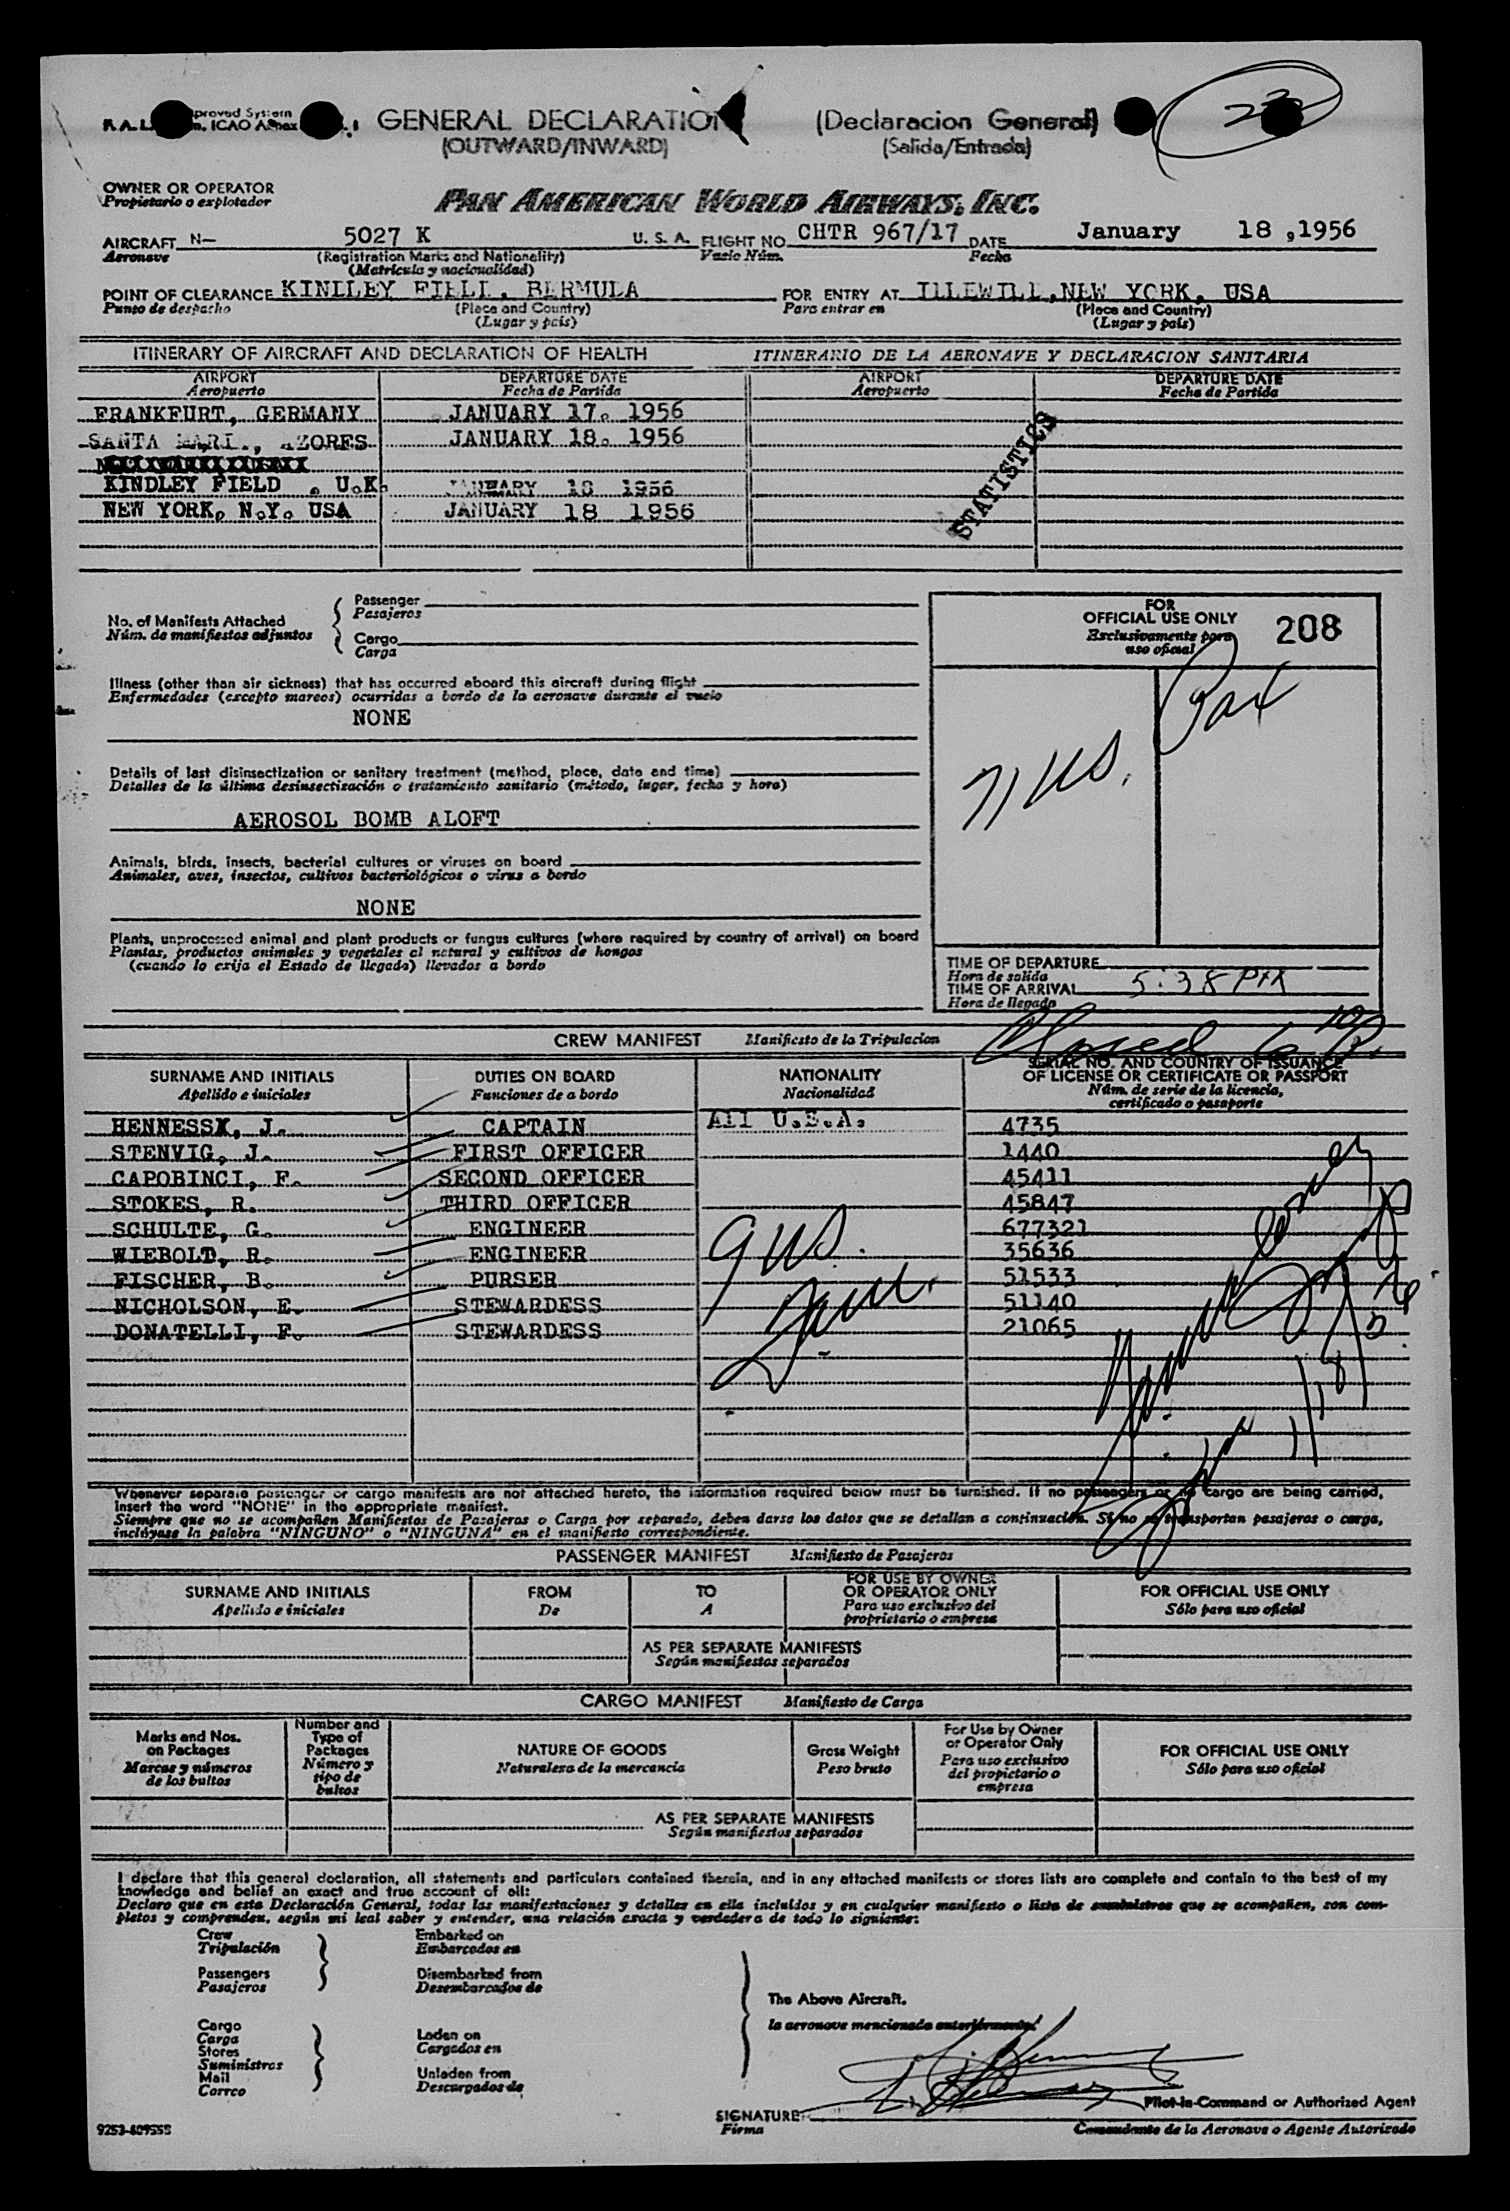 GENERAL DECLARATION (Declaracion General)
(OUTWARD/INWARD) (Salida/Entrada)
OWNER OR OPERATOR
Propietario o explotador
PAN AMERICAN WORLD AIRWAYS, INC.
AIRCRAFT N- 5027 K U. S. A. FLIGHT NO. CHTR 967/17 DATE January 18, 1956
Aeronave (Registration Marks and Nationality) Vuelo Núm. Fecha
(Matricula y nacionalidad)
POINT OF CLEARANCE KINDLEY FIELD, BERMUDA FOR ENTRY AT IDLEWILD, NEW YORK, USA
Punto de despacho (Place and Country) Para entrar en (Place and Country)
(Lugar y país) (Lugar y país)
ITINERARY OF AIRCRAFT AND DECLARATION OF HEALTH ITINERARIO DE LA AERONAVE Y DECLARACION SANITARIA
AIRPORT DEPARTURE DATE AIRPORT DEPARTURE DATE
Aeropuerto Fecha de Partida Aeropuerto Fecha de Partida
FRANKFURT, GERMANY JANUARY 17. 1956
SANTA MARIA, AZORES JANUARY 18. 1956
KINDLEY FIELD , U.K. JANUARY 18 1956
NEW YORK, N.Y. USA JANUARY 18 1956
STATISTICS
No. of Manifests Attached
Núm. de manifiestos adjuntos
Passenger
Pasajeros
Cargo
Carga
FOR
OFFICIAL USE ONLY
Exclusivamente para
uso oficial
208
Illness (other than air sickness) that has occurred aboard this aircraft during flight
Enfermedades (excepto mareos) ocurridas a bordo de la aeronave durante el vuelo
NONE
Pax
Details of last disinsectization or sanitary treatment (method, place, date and time)
Detalles de la última desinsectización o tratamiento sanitario (método, lugar, fecha y hora)
AEROSOL BOMB ALOFT
Animals, birds, insects, bacterial cultures or viruses on board
Animales, aves, insectos, cultivos bacteriológicos o virus a bordo
NONE
Plants, unprocessed animal and plant products or fungus cultures (where required by country of arrival) on board
Plantas, productos animales y vegetales al natural y cultivos de hongos
(cuando lo exija el Estado de llegada) llevados a bordo
TIME OF DEPARTURE
Hora de salida
TIME OF ARRIVAL 5:38 PM
Hora de llegada
CREW MANIFEST Manifiesto de la Tripulacion
Closed
SURNAME AND INITIALS DUTIES ON BOARD NATIONALITY SERIAL NO. AND COUNTRY OF ISSUANCE
OF LICENSE OR CERTIFICATE OR PASSPORT
Apellido e iniciales Funciones de a bordo Nacionalidad Núm. de serie de la licencia,
certificado o pasaporte
HENNESSY, J. CAPTAIN All U.S.A. 4735
STENVIG, J. FIRST OFFICER 1440
CAPOBINCI, F. SECOND OFFICER 45411
STOKES, R. THIRD OFFICER 45847
SCHULTE, G. ENGINEER 677321
WIEBOLT, R. ENGINEER 35636
FISCHER, B. PURSER 51533
NICHOLSON, E. STEWARDESS 51140
DONATELLI, F. STEWARDESS 21065
Whenever separate passenger or cargo manifests are not attached hereto, the information required below must be furnished. If no passengers or no cargo are being carried,
insert the word "NONE" in the appropriate manifest.
Siempre que no se acompañen Manifiestos de Pasajeros o Carga por separado, deben darse los datos que se detallan a continuación. Si no se transportan pasajeros o carga,
inclúyase la palabra "NINGUNO" o "NINGUNA" en el manifiesto correspondiente.
PASSENGER MANIFEST Manifiesto de Pasajeros
SURNAME AND INITIALS FROM TO FOR USE BY OWNER
OR OPERATOR ONLY FOR OFFICIAL USE ONLY
Apellido e iniciales De A Para uso exclusivo del
propietario o empresa Sólo para uso oficial
AS PER SEPARATE MANIFESTS
Según manifiestos separados
CARGO MANIFEST Manifiesto de Carga
Marks and Nos.
on Packages
Marcas y números
de los bultos
Number and
Type of
Packages
Número y
tipo de
bultos
NATURE OF GOODS
Naturaleza de la mercancía
Gross Weight
Peso bruto
For Use by Owner
or Operator Only
Para uso exclusivo
del propietario o
empresa
FOR OFFICIAL USE ONLY
Sólo para uso oficial
AS PER SEPARATE MANIFESTS
Según manifiestos separados
I declare that this general declaration, all statements and particulars contained therein, and in any attached manifests or stores lists are complete and contain to the best of my
knowledge and belief an exact and true account of all:
Declaro que en esta Declaración General, todas las manifestaciones y detalles en ella incluídos y en cualquier manifiesto o lista de suministros que se acompañen, son com-
pletos y comprenden, según mi leal saber y entender, una relación exacta y verdadera de todo lo siguiente:
Crew
Tripulación
Passengers
Pasajeros
Embarked on
Embarcados en
Disembarked from
Desembarcados de
The Above Aircraft.
la aeronave mencionada anteriormente.
Cargo
Carga
Stores
Suministros
Mail
Correo
Laden on
Cargados en
Unladen from
Descargados de
SIGNATURE
Firma
Pilot-in-Command or Authorized Agent
Comandante de la Aeronave o Agente Autorizado